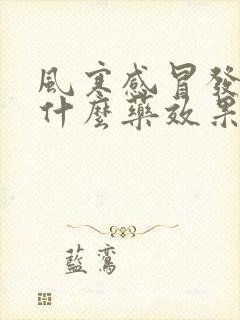 風寒感冒發
什麼藥效果
藍鸞